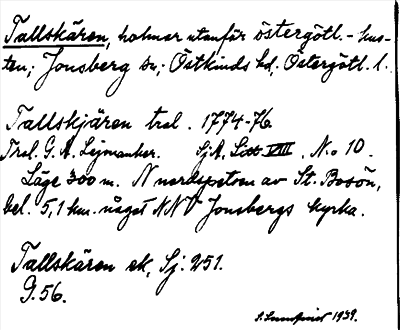 Tallskären, holmar utanför östergötl.-kus-
ten; Jonsberg sn; Östkinds hd; Östergötl. l.
Tallskjären trol. 1774-76
Thol. G. A. Lejmanker. SjA, Litt VIII. No 10.
Läge 300 m. N nordspetsen av St. Bosön,
bel. 5,1 km. något NNV Jonsbergs kyrka.
Tallskären ek, Sj: 251.
G. 56.
1939.